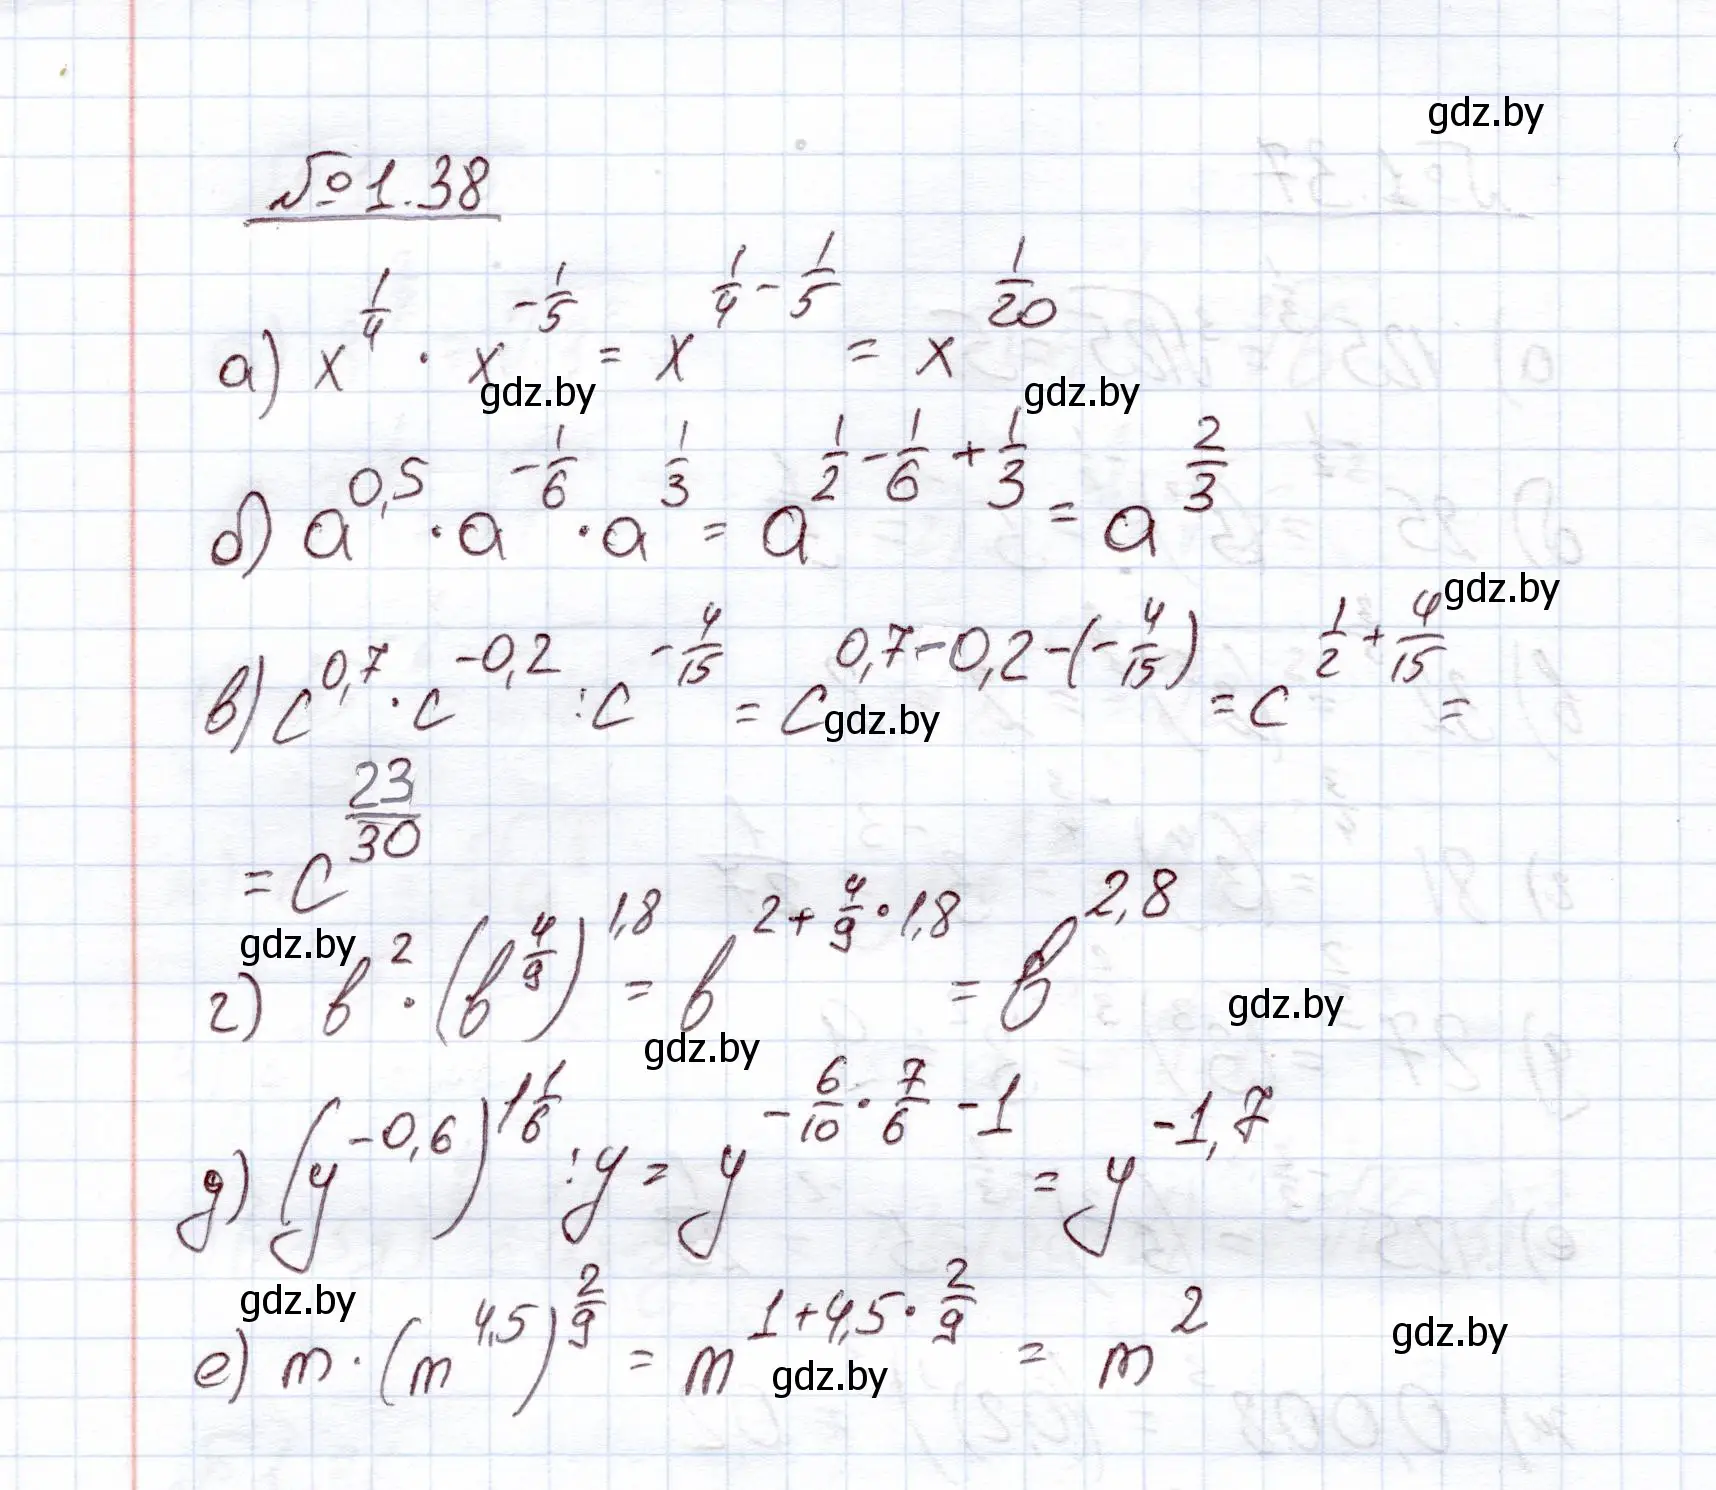 gdz.by
№ 1.38
а) x^{1/4} · x^{-1/5} = x^{1/4 - 1/5} = x^{1/20}
gdz.by gdz.by
б) a^{0,5} · a^{-1/6} · a^{1/3} = a^{1/2 - 1/6 + 1/3} = a^{2/3}
gdz.by
в) c^{0,7} · c^{-0,2} : c^{-4/15} = c^{0,7-0,2-(-4/15)} = c^{1/2 + 4/15} =
gdz.by
= c^{23/30}
gdz.by
г) b^2 · (b^{4/9})^{1,8} = b^{2 + 4/9 · 1,8} = b^{2,8}
gdz.by
gdz.by
д) (y^{-0,6})^{1 1/6} : y = y^{-6/10 · 7/6 - 1} = y^{-1,7}
gdz.by
gdz.by
е) m · (m^{4,5})^{2/9} = m^{1+4,5 · 2/9} = m^2
gdz.by